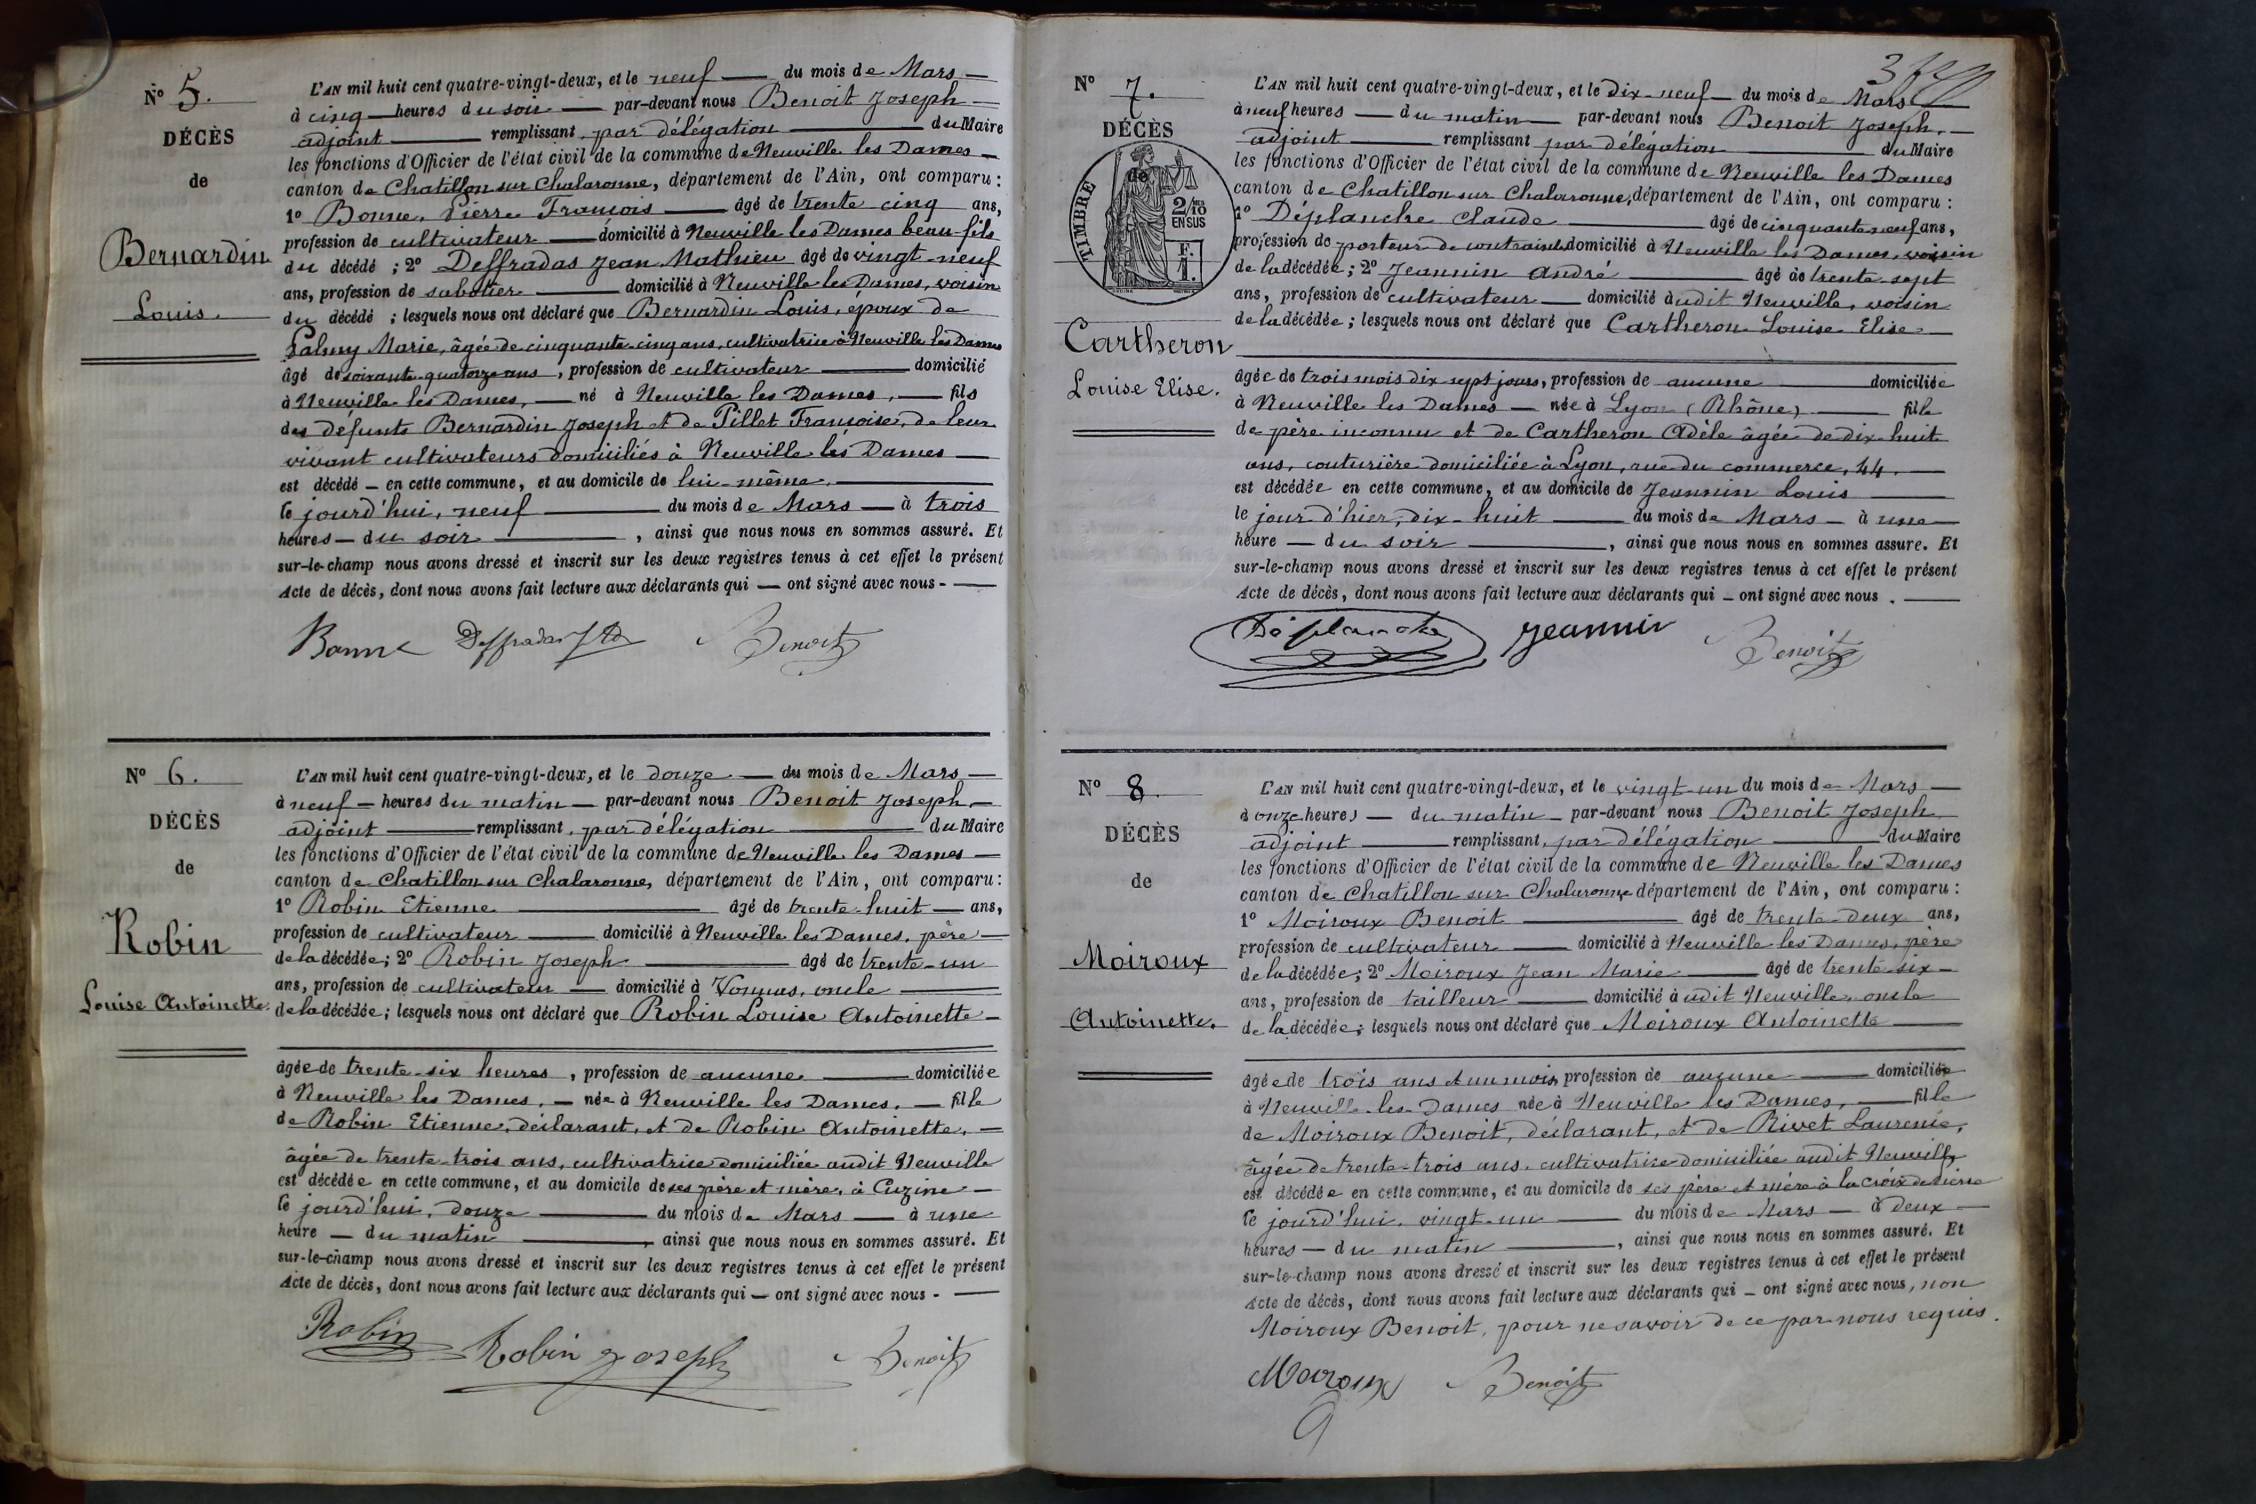 N° 5.
DÉCÈS
de
Bernardin
Louis.
L'AN mil huit cent quatre-vingt-deux, et le neuf — du mois de Mars —
à cinq — heures du soir — par-devant nous Benoit Joseph —
adjoint — remplissant par délégation — du Maire
les fonctions d'Officier de l'état civil de la commune de Neuville les Dames —
canton de Chatillon sur Chalaronne, département de l'Ain, ont comparu :
1° Bonne, Pierre François — âgé de trente cinq ans,
profession de cultivateur — domicilié à Neuville les Dames beau-fils
du décédé ; 2° Deffradas Jean Mathieu âgé de vingt-neuf
ans, profession de sabotier — domicilié à Neuville les Dames, voisin
du décédé ; lesquels nous ont déclaré que Bernardin Louis, époux de
Palmy Marie, âgée de cinquante-cinq ans, cultivatrice à Neuville les Dames
âgé de soixante-quatorze ans, profession de cultivateur — domicilié
à Neuville les Dames, — né à Neuville les Dames, — fils
des défunts Bernardin Joseph et de Pillet Françoise, de leur
vivant cultivateurs domiciliés à Neuville les Dames —
est décédé — en cette commune, et au domicile de lui-même, —
le jourd'hui, neuf — du mois de Mars — à trois
heures — du soir — , ainsi que nous nous en sommes assuré. Et
sur-le-champ nous avons dressé et inscrit sur les deux registres tenus à cet effet le présent
Acte de décès, dont nous avons fait lecture aux déclarants qui — ont signé avec nous - —
Bonne Deffradas Benoit
N° 6.
DÉCÈS
de
Robin
Louise Antoinette.
L'AN mil huit cent quatre-vingt-deux, et le douze — du mois de Mars —
à neuf — heures du matin — par-devant nous Benoit Joseph —
adjoint — remplissant, par délégation — du Maire
les fonctions d'Officier de l'état civil de la commune de Neuville les Dames —
canton de Chatillon sur Chalaronne, département de l'Ain, ont comparu :
1° Robin Etienne — âgé de trente-huit — ans,
profession de cultivateur — domicilié à Neuville les Dames, père —
de la décédée ; 2° Robin Joseph — âgé de trente-un
ans, profession de cultivateur — domicilié à Vonnas, oncle —
de la décédée ; lesquels nous ont déclaré que Robin Louise Antoinette —
âgée de trente-six heures, profession de aucune — domiciliée
à Neuville les Dames, — née à Neuville les Dames, — fille
de Robin Etienne, déclarant, et de Robin Antoinette, —
âgée de trente-trois ans, cultivatrice domiciliée audit Neuville
est décédée en cette commune, et au domicile de ses père et mère, à Cuzine —
le jourd'hui, douze — du mois de Mars — à une
heure — du matin — , ainsi que nous nous en sommes assuré. Et
sur-le-champ nous avons dressé et inscrit sur les deux registres tenus à cet effet le présent
Acte de décès, dont nous avons fait lecture aux déclarants qui — ont signé avec nous - —
Robin Robin Joseph Benoit
N° 7.
DÉCÈS
de
TIMBRE
2/10 EN SUS
F. 1.
Cartheron
Louise Elise.
L'AN mil huit cent quatre-vingt-deux, et le dix-neuf — du mois de Mars —
à neuf heures — du matin — par-devant nous Benoit Joseph, —
adjoint — remplissant par délégation — du Maire
les fonctions d'Officier de l'état civil de la commune de Neuville les Dames
canton de Chatillon sur Chalaronne, département de l'Ain, ont comparu :
1° Déplanche Claude — âgé de cinquante-neuf ans,
profession de porteur de contraintes domicilié à Neuville les Dames, voisin
de la décédée ; 2° Jeannin André — âgé de trente-sept
ans, profession de cultivateur — domicilié audit Neuville, voisin
de la décédée ; lesquels nous ont déclaré que Cartheron Louise Elise —
âgée de trois mois dix sept jours, profession de aucune — domiciliée
à Neuville les Dames — née à Lyon (Rhône) — fille
de père inconnu et de Cartheron Adèle âgée de dix-huit
ans, couturière domiciliée à Lyon, rue du commerce, 44. —
est décédée en cette commune, et au domicile de Jeannin Louis —
le jour d'hier, dix-huit — du mois de Mars — à une —
heure — du soir — , ainsi que nous nous en sommes assure. Et
sur-le-champ nous avons dressé et inscrit sur les deux registres tenus à cet effet le présent
Acte de décès, dont nous avons fait lecture aux déclarants qui — ont signé avec nous . —
Déplanche Jeannin Benoit
N° 8.
DÉCÈS
de
Moiroux
Antoinette.
L'AN mil huit cent quatre-vingt-deux, et le vingt-un du mois de Mars —
à onze heures — du matin — par-devant nous Benoit Joseph
adjoint — remplissant, par délégation — du Maire
les fonctions d'Officier de l'état civil de la commune de Neuville les Dames
canton de Chatillon sur Chalaronne département de l'Ain, ont comparu :
1° Moiroux Benoit — âgé de trente-deux ans,
profession de cultivateur — domicilié à Neuville les Dames, père
de la décédée ; 2° Moiroux Jean Marie — âgé de trente-six —
ans, profession de tailleur — domicilié audit Neuville, oncle
de la décédée ; lesquels nous ont déclaré que Moiroux Antoinette —
âgée de trois ans et un mois, profession de aucune — domiciliée
à Neuville les Dames née à Neuville les Dames, — fille
de Moiroux Benoit, déclarant, et de Rivet Laurence,
âgée de trente-trois ans, cultivatrice domiciliée audit Neuville
est décédée en cette commune, et au domicile de ses père et mère à la croix de pierre
le jourd'hui, vingt-un — du mois de Mars — à deux —
heures — du matin — , ainsi que nous nous en sommes assuré. Et
sur-le-champ nous avons dressé et inscrit sur les deux registres tenus à cet effet le présent
Acte de décès, dont nous avons fait lecture aux déclarants qui — ont signé avec nous, non
Moiroux Benoit, pour ne savoir de ce par nous requis.
Moiroux Benoit